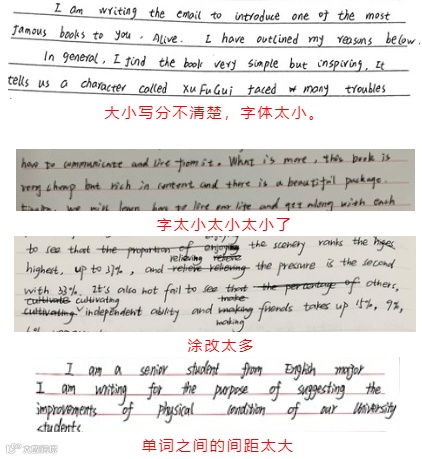 I am writing the email to introduce one of the most
famous books to you, Alive. I have outlined my reasons below.
In general, I find the book very simple but inspiring. It
tells us a character called Xu FuGui faced many troubles
大小写分不清楚，字体太小。
how to communicate and live from it. What is more, this book is
very cheap but rich in content and there is a beautiful package.
we will learn how to live our life and get along with each
字太小太小太小了
enjoying
to see that the proportion of enjoying the scenery ranks the
relieving relieve
highest, up to 37%, and relieve relieving the pressure is the second
with 33%. It's also not fail to see that the percentage of others,
cultivate cultivating make
cultivating independent ability and making friends takes up 15%, 9%,
making
涂改太多
I am a senior student from English major
I am writing for the purpose of suggesting the
improvements of physical condition of our University
students
单词之间的间距太大